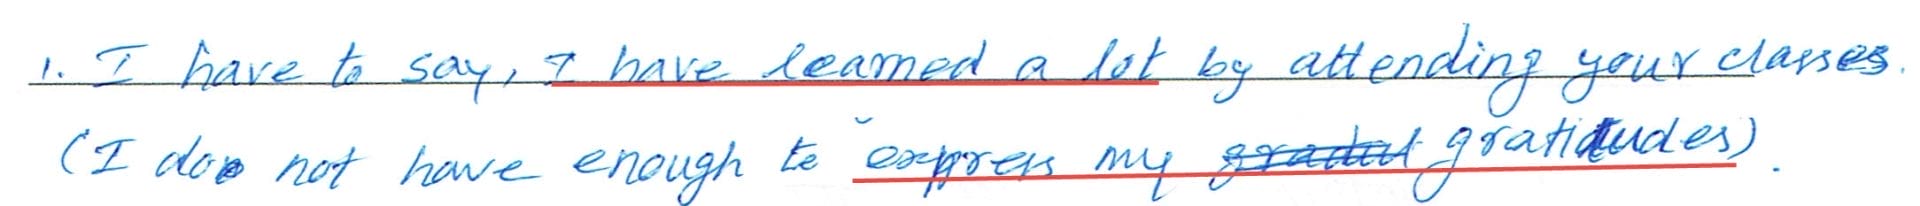 1. I have to say, I have learned a lot by attending your classes.
(I do not have enough to express my gratitudes).